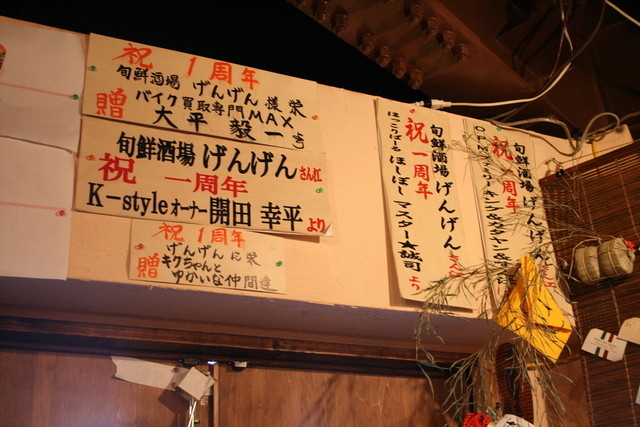 祝 1周年
旬鮮酒場 げんげん 様 栄
贈 バイク買取専門MAX
大平 毅一
旬鮮酒場 げんげん さん江
祝 一周年
K-style オーナー 開田 幸平 より
祝 1周年
げんげん に 栄
贈 キクちゃんと
ゆかいな仲間達
旬鮮酒場 げんげん さん江
祝 一周年
ほっこりばーる ほしぼし マスター★誠司 より
旬鮮酒場 げんげん
祝 一周年